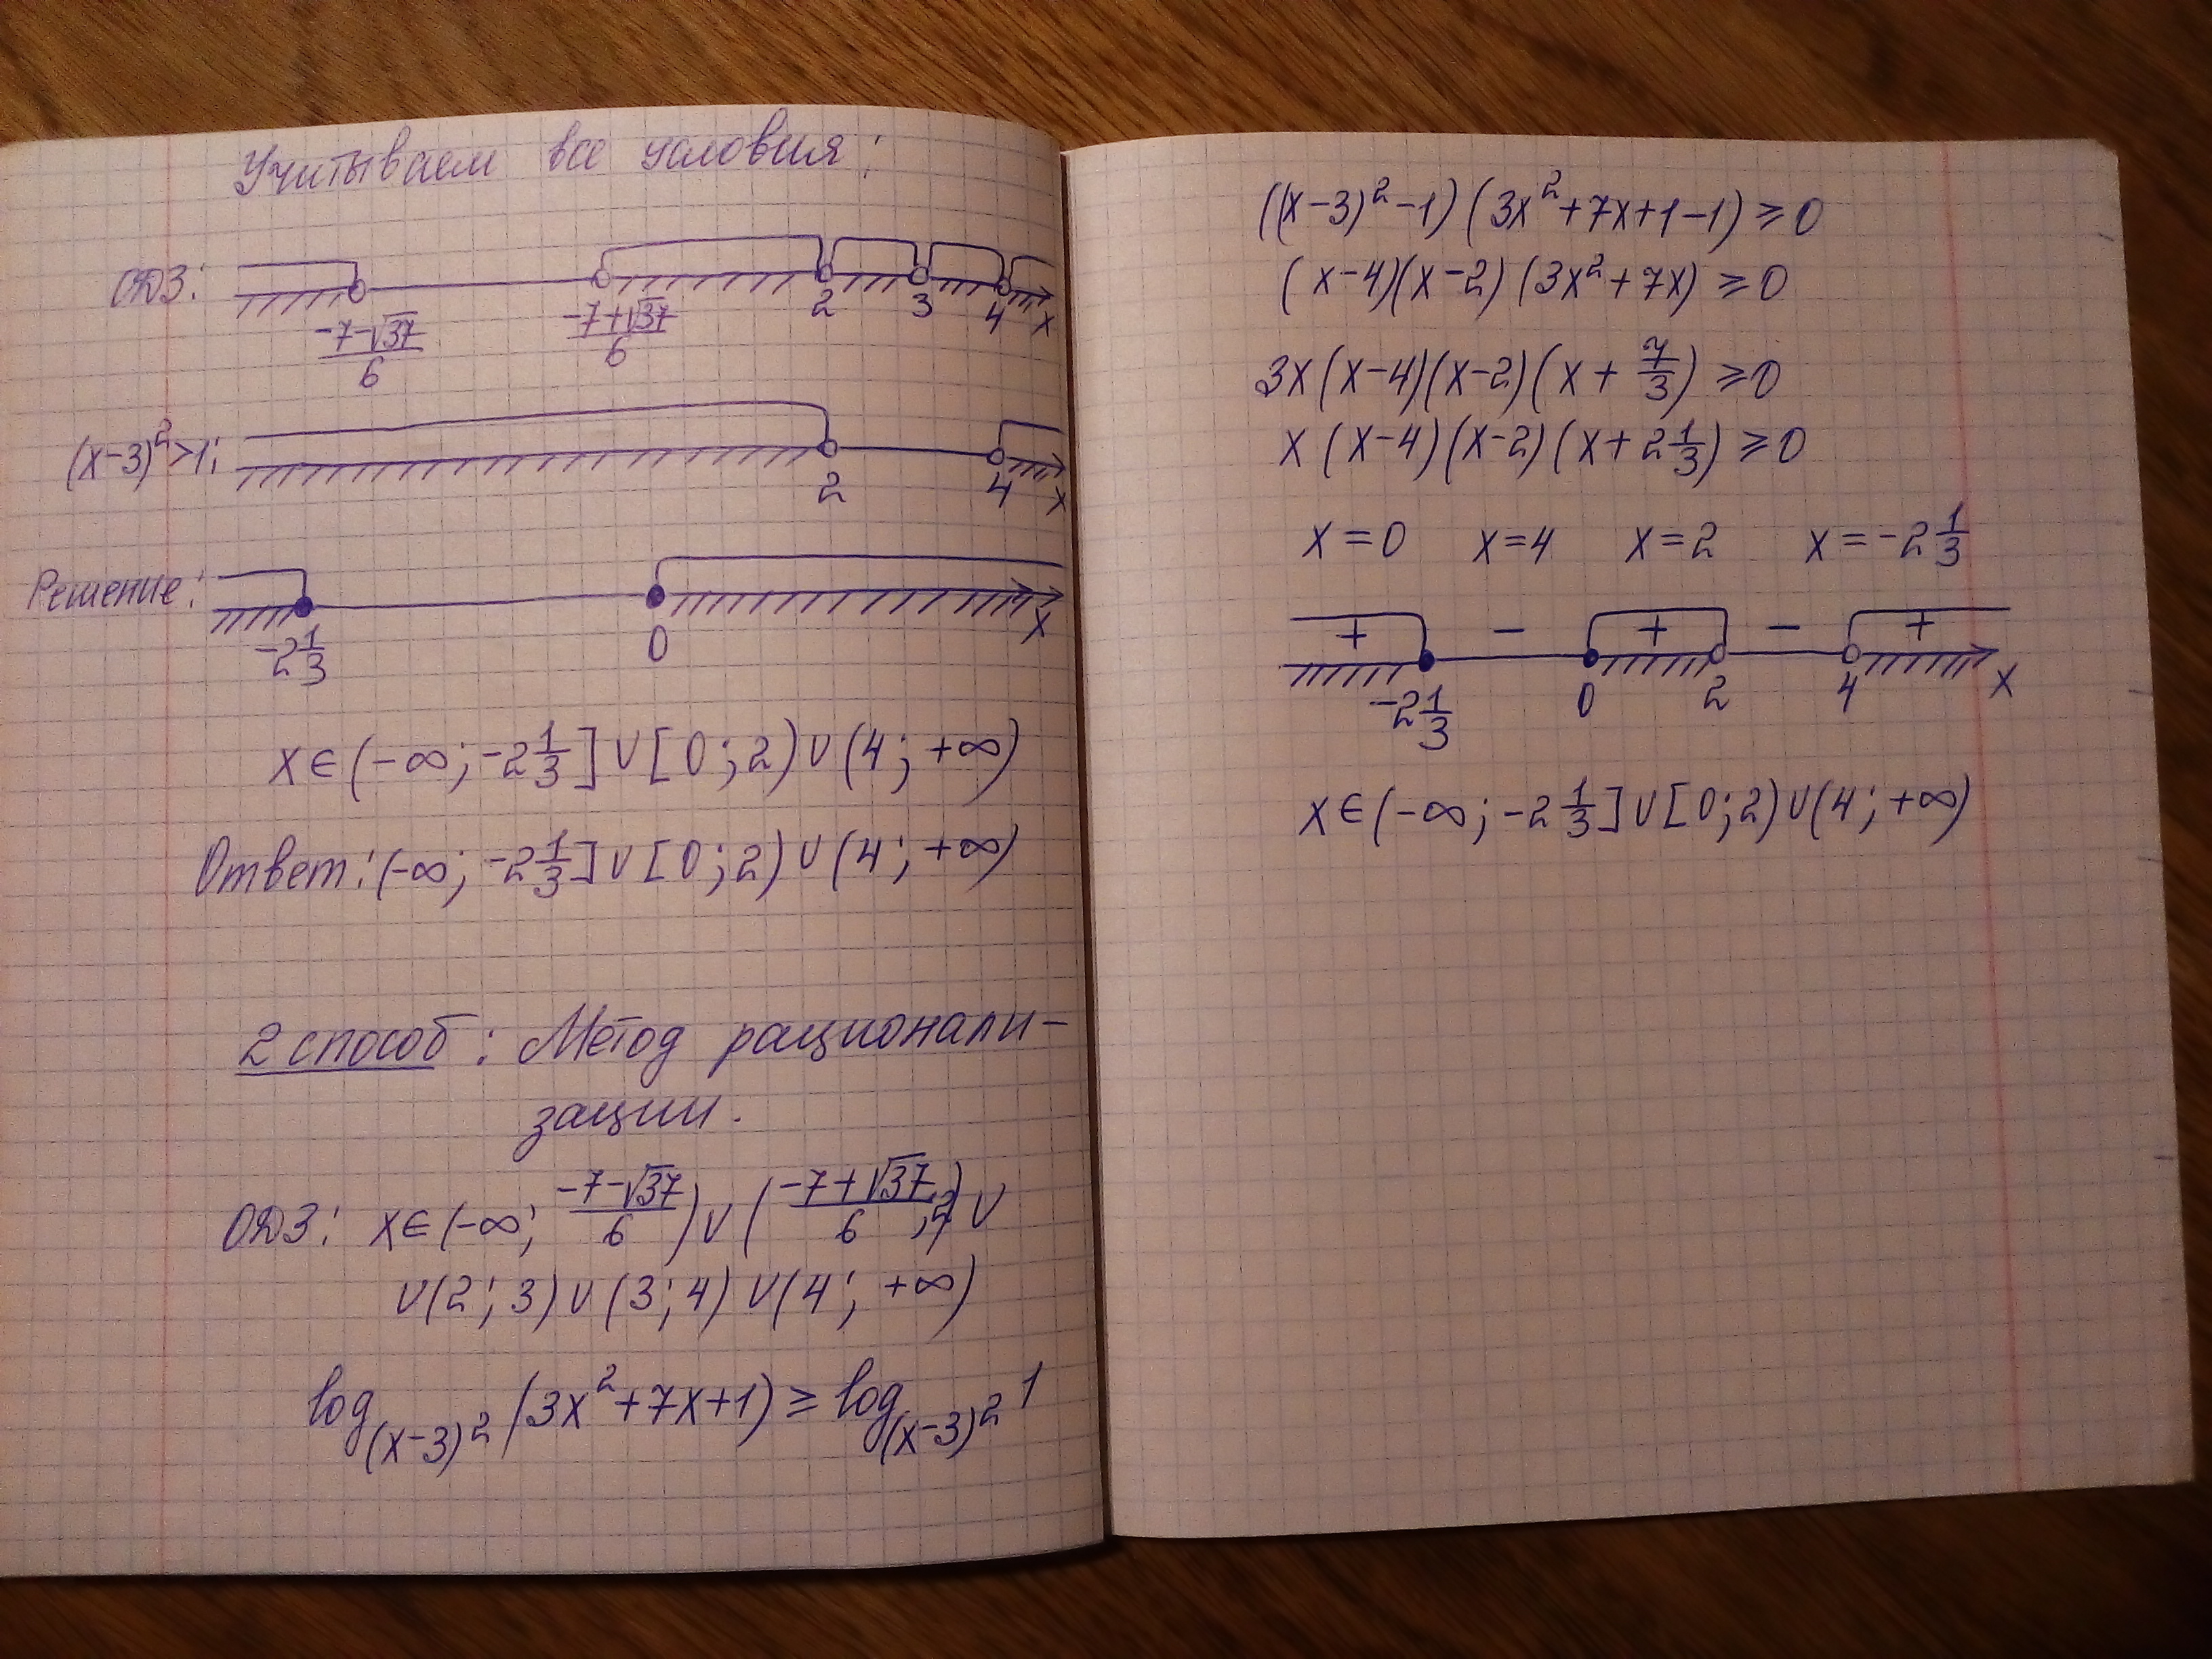 Учитываем все условия:
ОДЗ:
(-7-√37)/6 (-7+√37)/6 2 3 4 x
(x-3)²>1:
2 4 x
Решение:
-2 1/3 0 x
x∈(-∞; -2 1/3]∪[0; 2)∪(4; +∞)
Ответ: (-∞; -2 1/3]∪[0; 2)∪(4; +∞)
2 способ: Метод рационали-
зации.
ОДЗ: x∈(-∞; (-7-√37)/6)∪((-7+√37)/6; 2)∪
∪(2; 3)∪(3; 4)∪(4; +∞)
log_(x-3)² (3x²+7x+1) ≥ log_(x-3)² 1
((x-3)²-1)(3x²+7x+1-1) ≥ 0
(x-4)(x-2)(3x²+7x) ≥ 0
3x(x-4)(x-2)(x+7/3) ≥ 0
x(x-4)(x-2)(x+2 1/3) ≥ 0
x=0 x=4 x=2 x=-2 1/3
+ - + - +
-2 1/3 0 2 4 x
x∈(-∞; -2 1/3]∪[0; 2)∪(4; +∞)